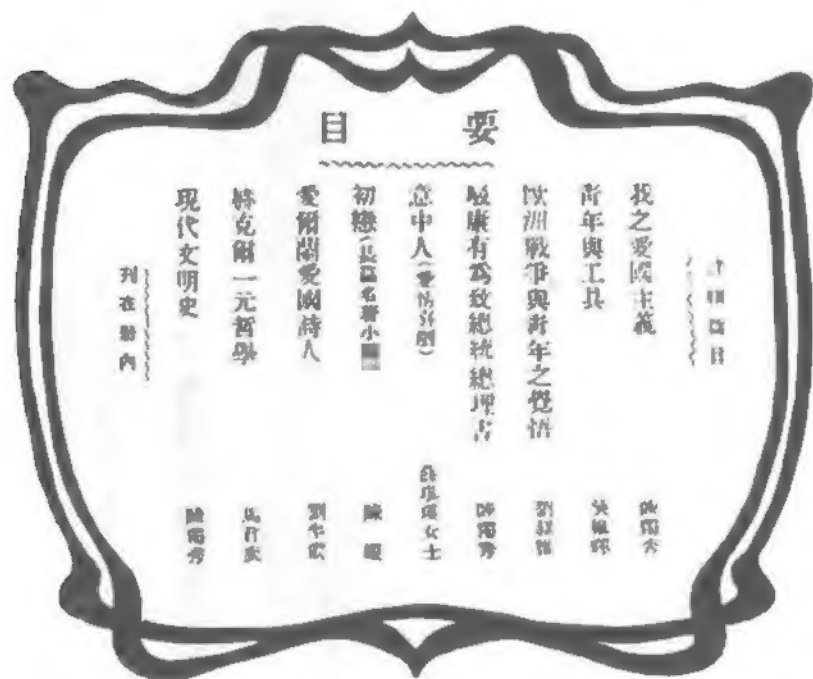 要目
我之愛國主義
陳獨秀
青年與工具
吳稚暉
歐洲戰爭與青年之覺悟
劉叔雅
駁康有為致總統總理書
陳獨秀
意中人(愛情喜劇)
薛琪瑛女士
初戀(長篇名著小
陳嘏
愛爾蘭愛國詩人
劉半農
赫克爾一元哲學
馬君武
現代文明史
陳獨秀
刊在冊內